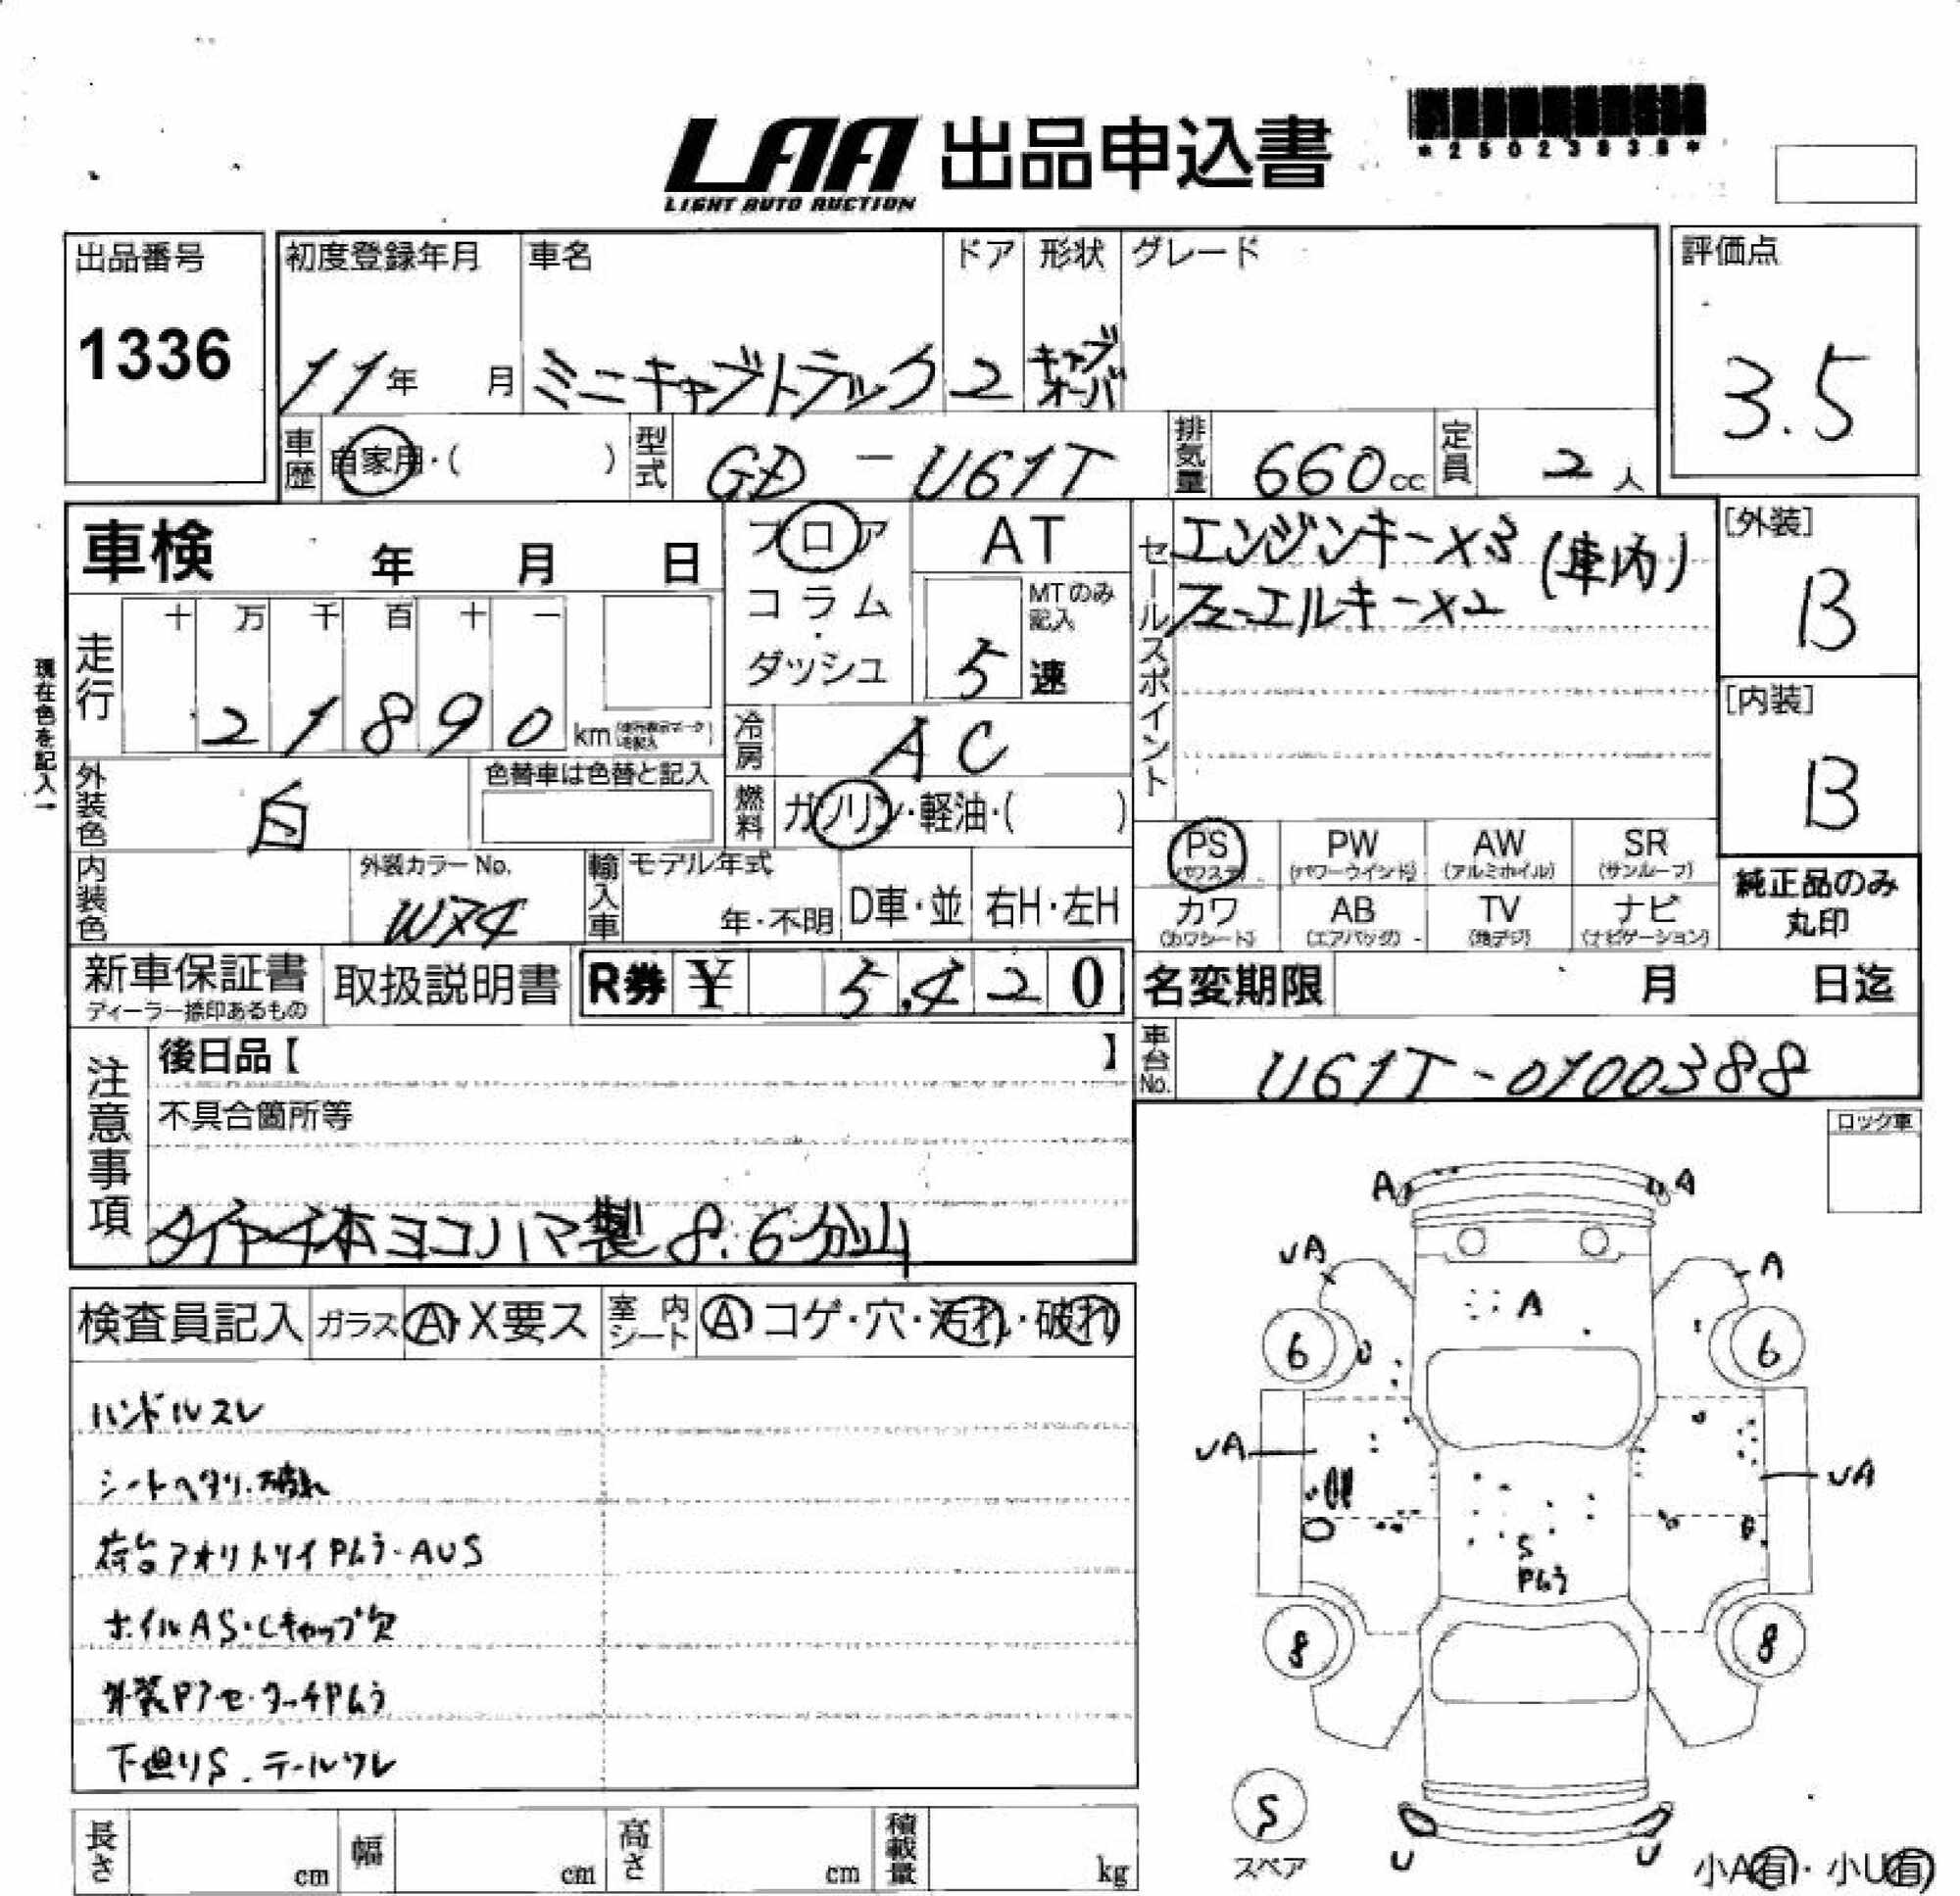 LAA 出品申込書
LIGHT AUTO AUCTION
*25023838*
出品番号
1336
初度登録年月
11年 月
車名
ミニキャブトラック
ドア
2
形状
キャブオーバ
グレード
評価点
3.5
車歴 自家用・( )
型式 GD - U61T
排気量 660cc
定員 2人
車検 年 月 日
フロア
コラム
・
ダッシュ
AT
MTのみ記入
5 速
セールスポイント
エンジンキー×3 (車内)
フューエルキー×2
[外装]
B
[内装]
B
現在色を記入→
走行
十 万 千 百 十 一
2 1 8 9 0 km
冷房 AC
燃料 ガソリン・軽油・( )
外装色 白
色替車は色替と記入
内装色
外装カラーNo.
W74
輸入車
モデル年式
年・不明
D車・並
右H・左H
PS PW AW SR
(パワステ) (パワーウインド) (アルミホイル) (サンルーフ)
カワ AB TV ナビ
(カワシート) (エアバッグ) (地デジ) (ナビゲーション)
純正品のみ
丸印
新車保証書
ディーラー捺印あるもの
取扱説明書
R券 ¥ 5,420
名変期限 月 日迄
車台No. U61T-0100388
注意事項
後日品【 】
不具合箇所等
タイヤ4本ヨコハマ製 8.6分山
ロック車
検査員記入 ガラス A・X要ス 室内シート A コゲ・穴・汚れ・破れ
ハンドルスレ
シートヘタリ・破れ
荷台アオリトリイPムラ・AUS
ホイルAS・Cキャップ欠
外装Pアセ・タッチPムラ
下廻りS.テールワレ
A A
UA A
A
6 6
UA UA
S
Pムラ
8 8
S
スペア
U U
小A有・小U有
長さ cm 幅 cm 高さ cm 積載量 kg